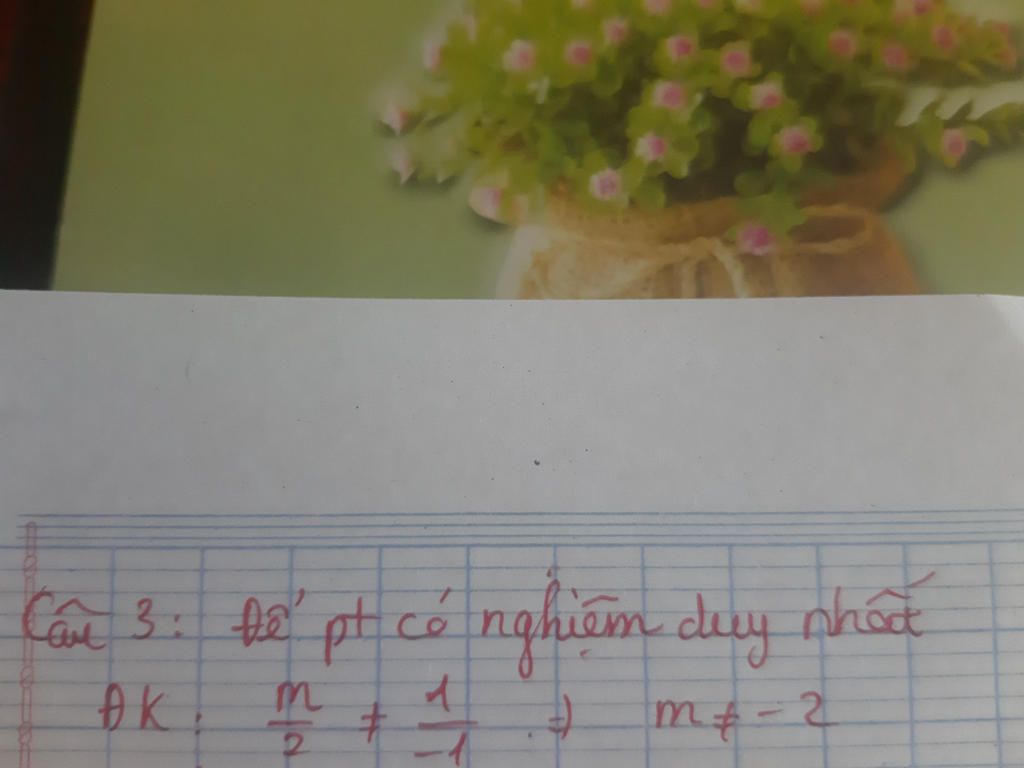 Câu 3: Để pt có nghiệm duy nhất
ĐK: m/2 ≠ 1/-1 => m ≠ -2